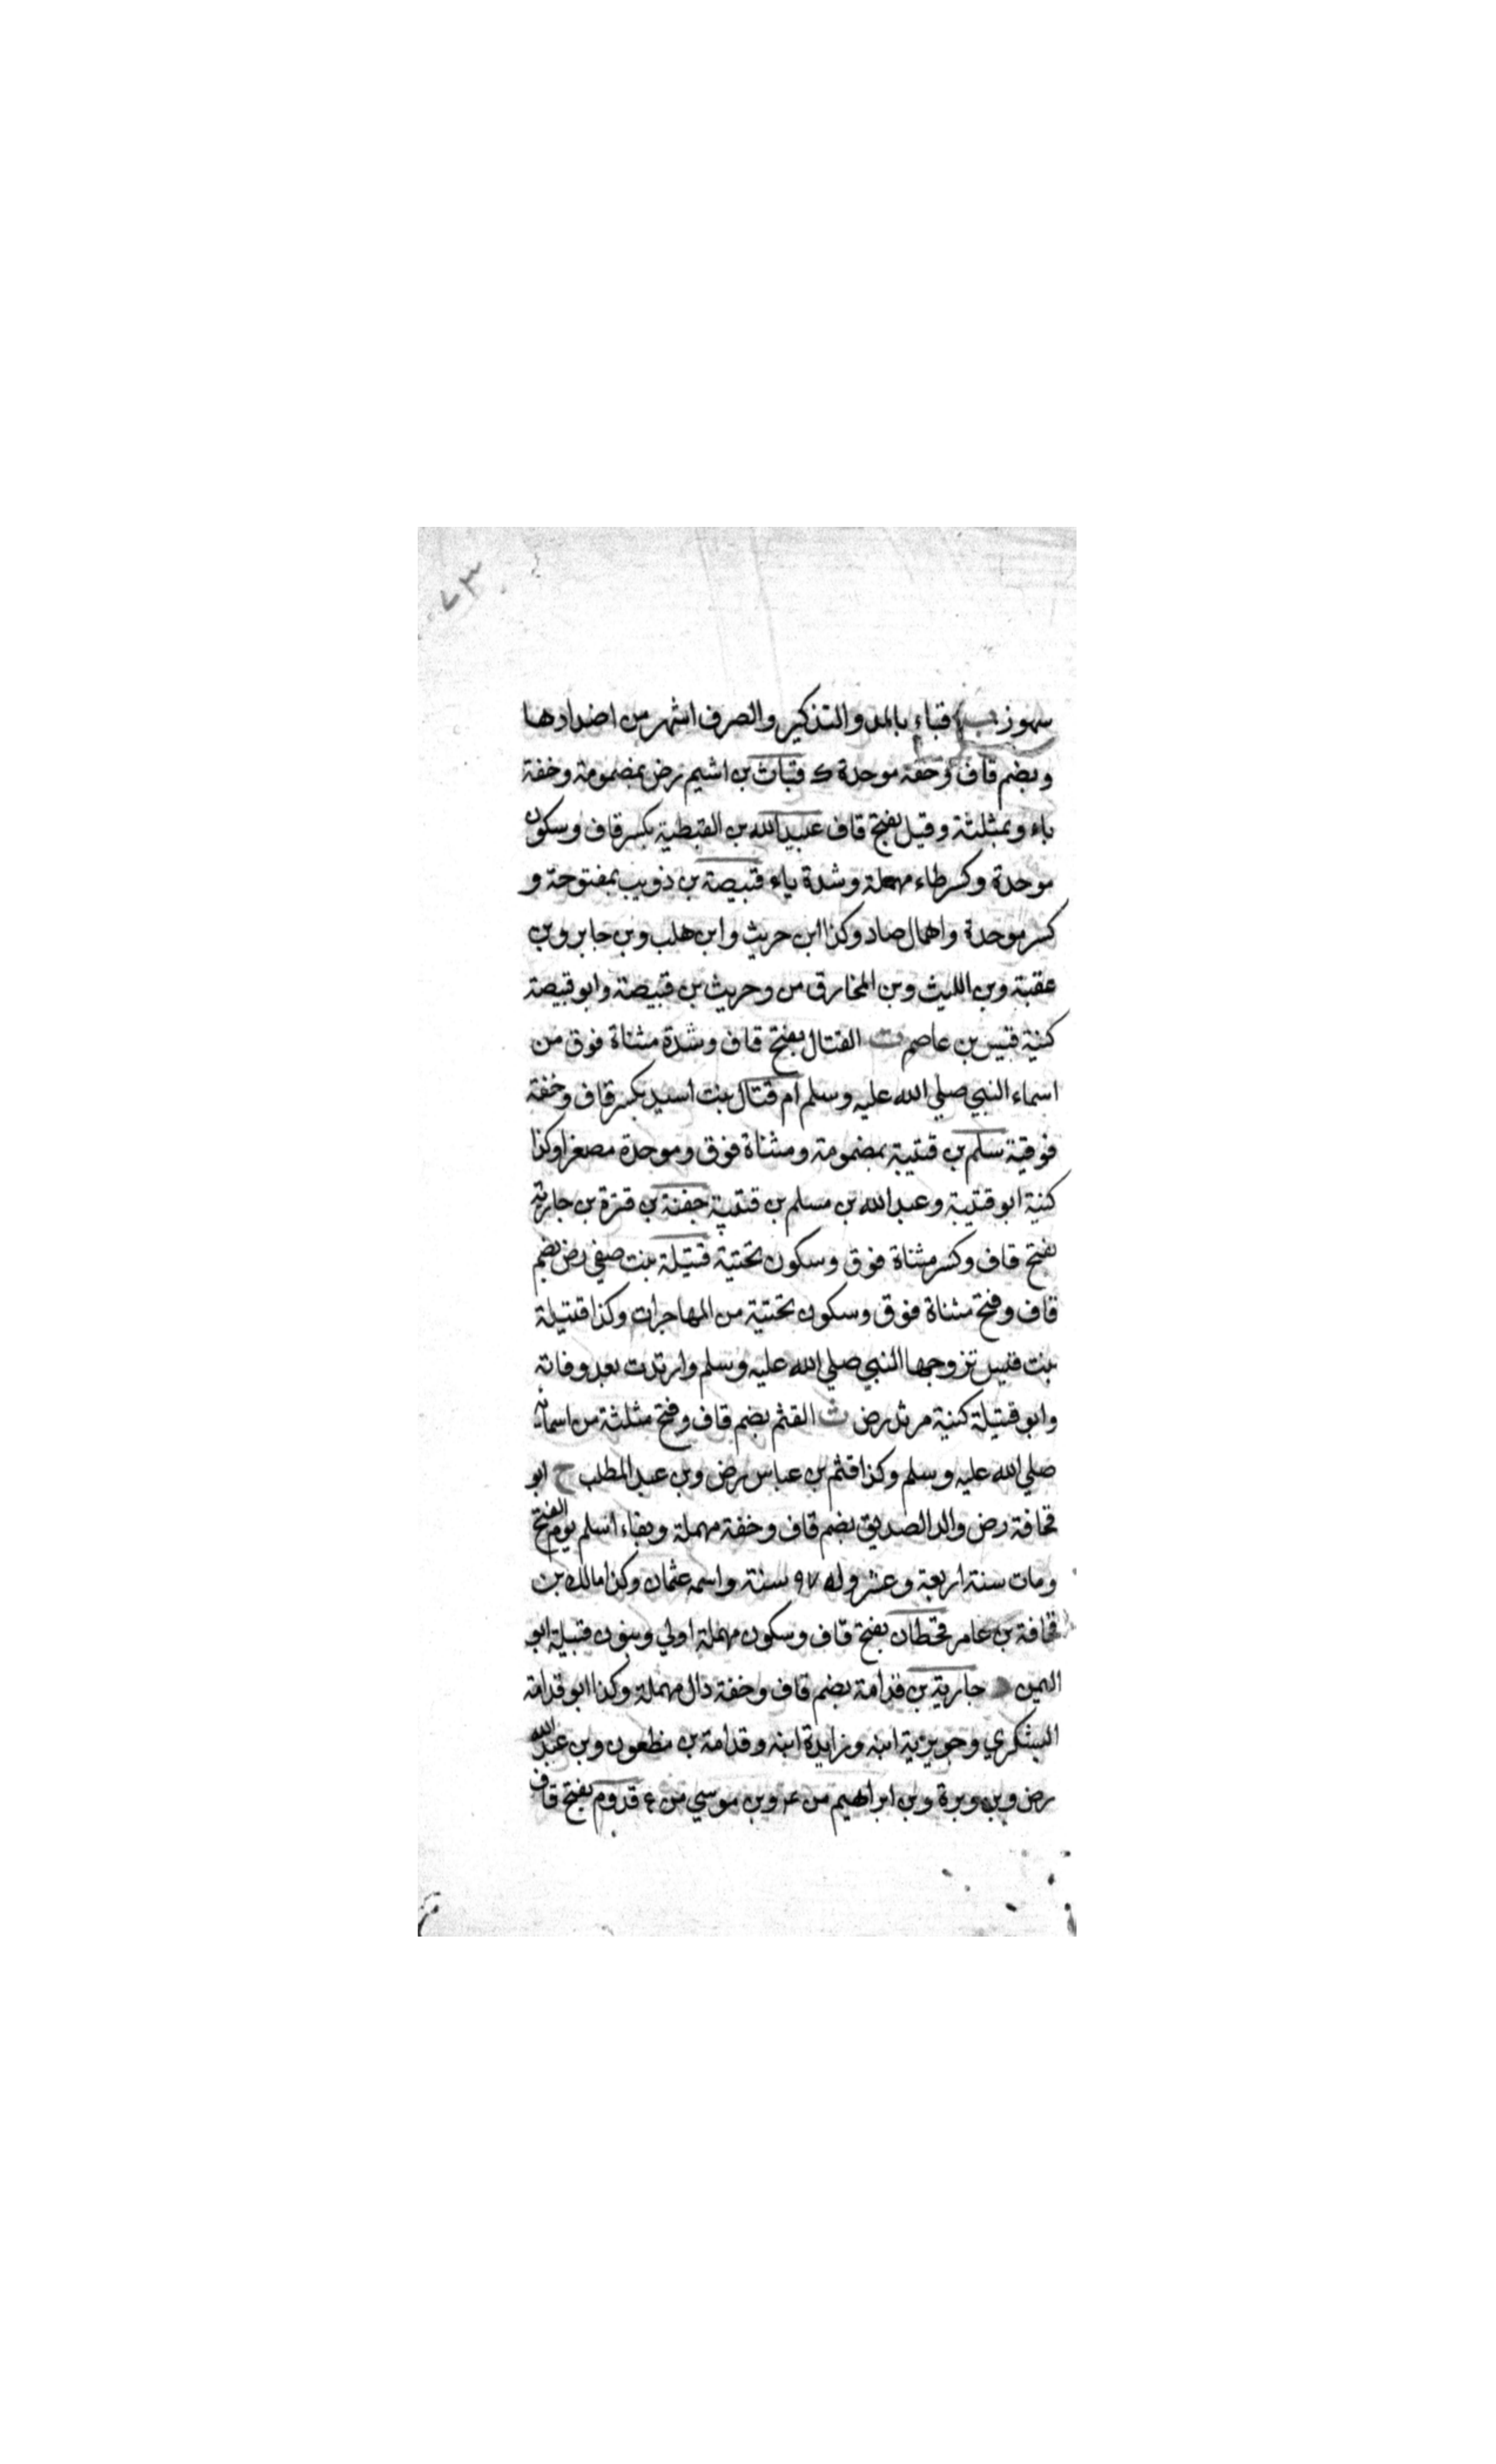 ٧٣
سهوز ب قباء بالمد والتذكير والصرف اشهر من اضدادها
وبضم قاف وخفة موحدة ك قباث بن اشيم رض بمضمومة وخفة
باء وبمثلثة وقيل بفتح قاف عبيد الله بن القبطية بكسر قاف وسكون
موحدة وكسر طاء مهملة وشدة ياء قبيصة بن ذويب بمفتوحة و
كسر موحدة واهمال صاد وكذا ابن حريث وابن هلب وبن جابر وبن
عقبة وبن الليث وبن المخارق من وحريث بن قبيصة وابو قبيصة
كنية قيس بن عاصم ت القتال بفتح قاف وشدة مثناة فوق من
اسماء النبي صلي الله عليه وسلم ام قتال بنت اسيد بكسر قاف وخفة
فوقية سلم بن قتيبة بمضمومة ومثناة فوق وموحدة مصغرا وكذا
كنية ابو قتيبة وعبد الله بن مسلم بن قتيبة جفنة بن قترة بن حارثة
بفتح قاف وكسر مثناة فوق وسكون تحتية قتيلة بنت صيفي رض بضم
قاف وفتح مثناة فوق وسكون تحتية من المهاجرات وكذا قتيلة
بنت قيس تزوجها النبي صلي الله عليه وسلم وارتدت بعد وفاته
وابو قتيلة كنية مرثد رض ث القثم بضم قاف وفتح مثلثة من اسمائه
صلي الله عليه وسلم وكذا قثم بن عباس رض وبن عبد المطلب ح ابو
قحافة رض والد الصديق بضم قاف وخفة مهملة وبفاء اسلم يوم الفتح
ومات سنة اربعة وعشر وله ٩٧ سنة واسمه عثمان وكذا مالك بن
قحافة بن عامر قحطان بفتح قاف وسكون مهملة اولي وبنون قبيلة ابو
اليمن د جارية بن قدامة بضم قاف وخفة دال مهملة وكذا ابو قدامة
اليشكري وجويرية ابنه وزايدة ابنه وقدامة بن مظعون وبن عبد الله
رض وبن وبرة وبن ابراهيم من عمر وبن موسي من ع قدوم بفتح قاف